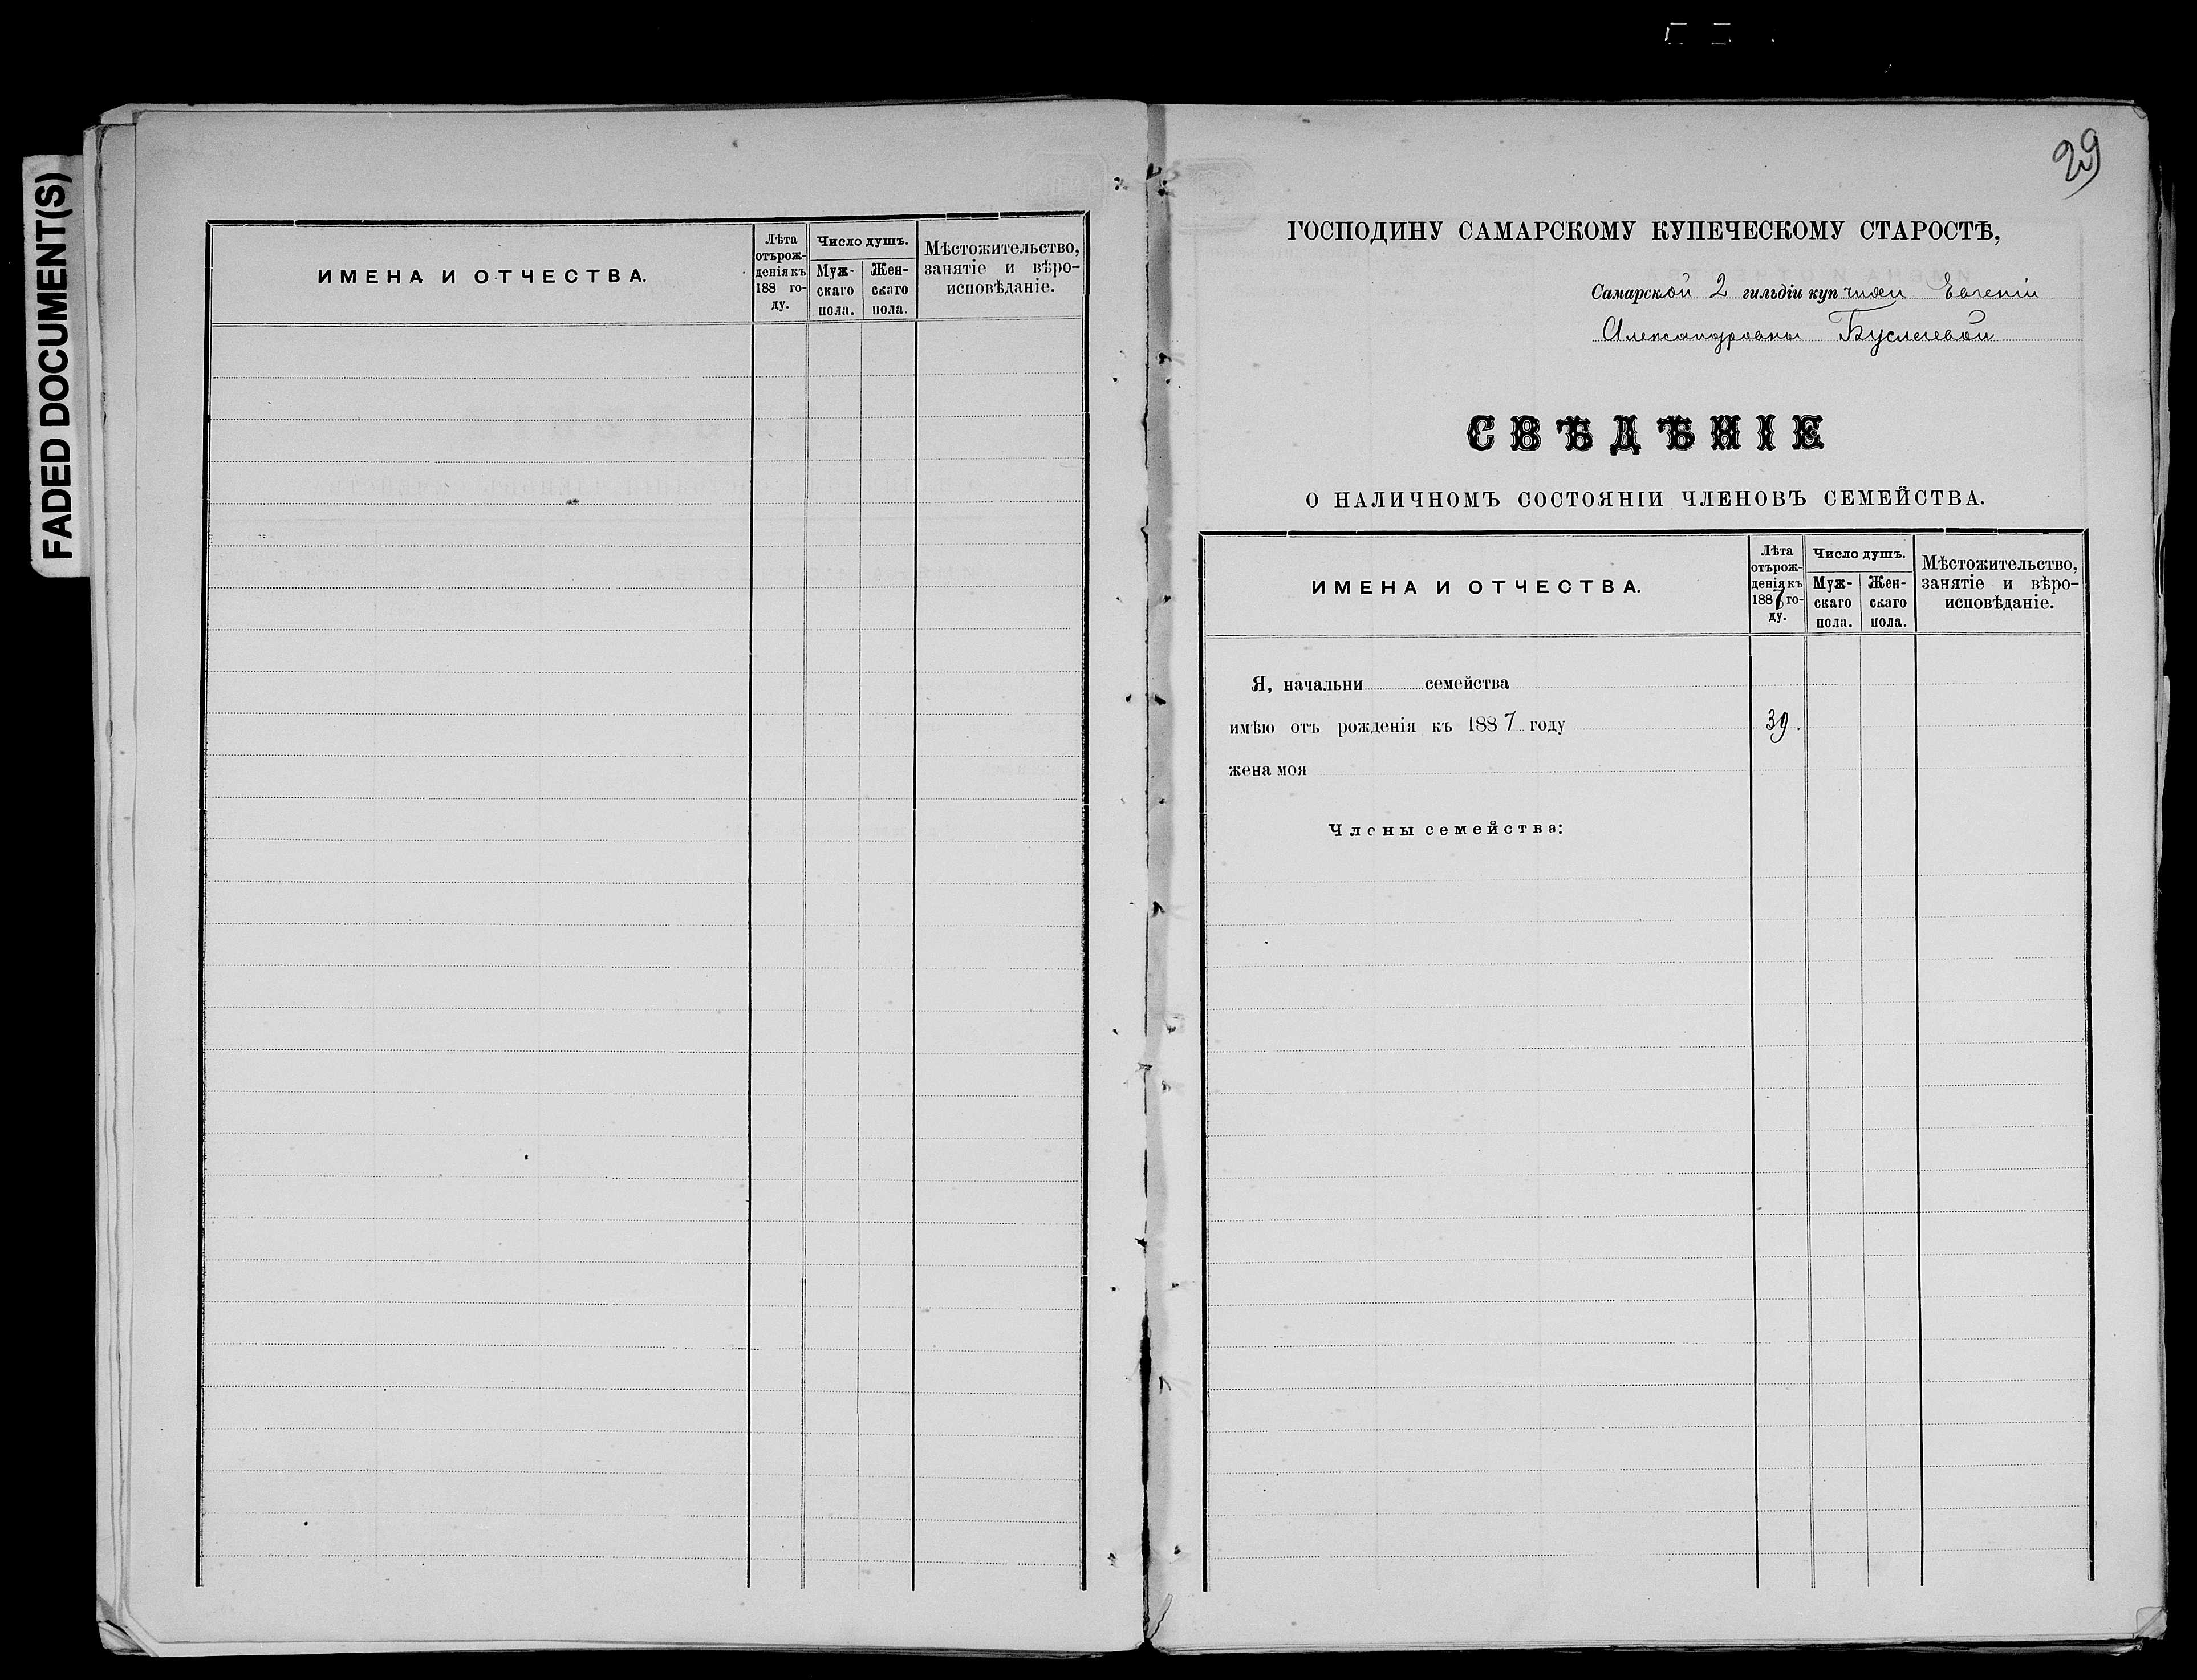 FADED DOCUMENT(S)
ИМЕНА И ОТЧЕСТВА.
Лѣта
отърож-
денія къ
188 го-
ду.
Число душъ.
Муж-
скаго
пола.
Жен-
скаго
пола.
Мѣстожительство,
занятіе и вѣро-
исповѣданіе.
29
ГОСПОДИНУ САМАРСКОМУ КУПЕЧЕСКОМУ СТАРОСТѢ,
Самарской 2 гильдіи купчихи Евгеніи
Александровны Буслаевой
СВѢДѢНІЕ
О НАЛИЧНОМЪ СОСТОЯНІИ ЧЛЕНОВЪ СЕМЕЙСТВА.
ИМЕНА И ОТЧЕСТВА.
Лѣта
отърож-
денія къ
1887 го-
ду.
Число душъ.
Муж-
скаго
пола.
Жен-
скаго
пола.
Мѣстожительство,
занятіе и вѣро-
исповѣданіе.
Я, начальни семейства
имѣю отъ рожденія къ 1887 году 39.
жена моя
Члены семейства: